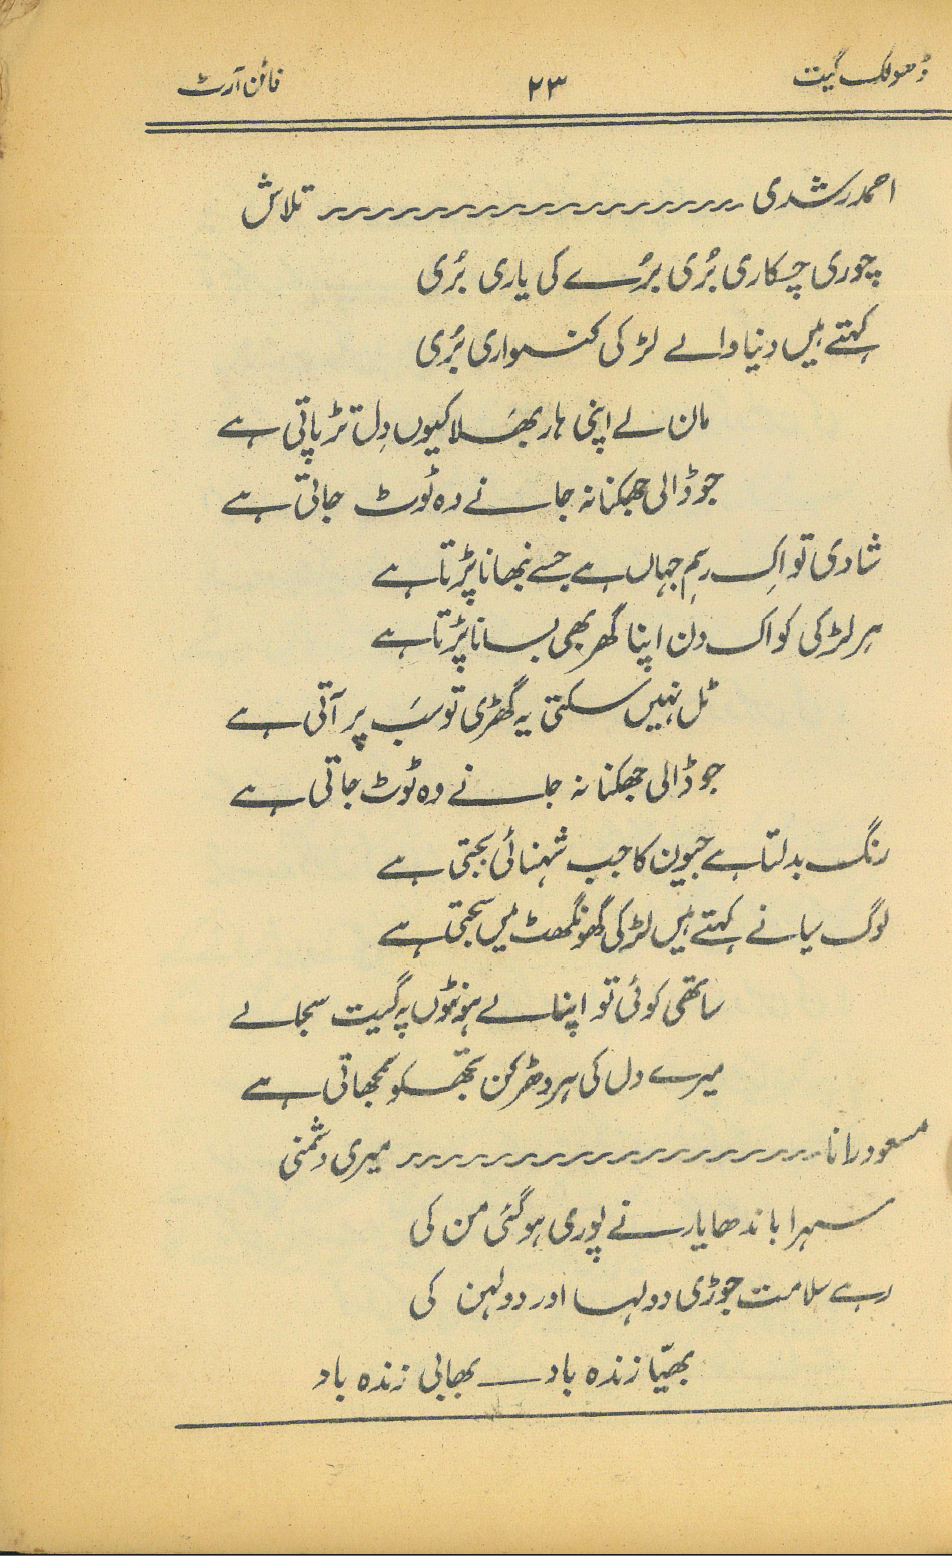 ڈھولک گیت ۲۳ فائن آرٹ
احمد رشدی ـــــــــ تلاش
چوری چکاری بُری بُرے کی یاری بُری
کہتے ہیں دنیا والے لڑکی کنواری بُری
مان لے اپنی ہار بھَلا کیوں دِل تڑپاتی ہے
جو ڈالی جھکنا نہ جانے وہ ٹوٹ جاتی ہے
شادی تو اِک رسمِ جہاں ہے جسے نبھانا پڑتا ہے
ہر لڑکی کو اک دن اپنا گھر بھی بسانا پڑتا ہے
ٹل نہیں سکتی یہ گھڑی تو سَب پر آتی ہے
جو ڈالی جھکنا نہ جانے وہ ٹوٹ جاتی ہے
رنگ بدلتا ہے جیون کا جب شہنائی بجتی ہے
لوگ سیانے کہتے ہیں لڑکی گھونگھٹ میں سجتی ہے
ساتھی کوئی تو اپنالے ہونٹوں پہ گیت سجالے
میرے دل کی ہر دھڑکن تجھکو سمجھاتی ہے
مسعود رانا ـــــــــ میری دشمنی
سہرا باندھا یار نے پوری ہوگئی من کی
رہے سلامت جوڑی دولہا اور دولہن کی
بھیّا زندہ باد ـــ بھابی زندہ باد